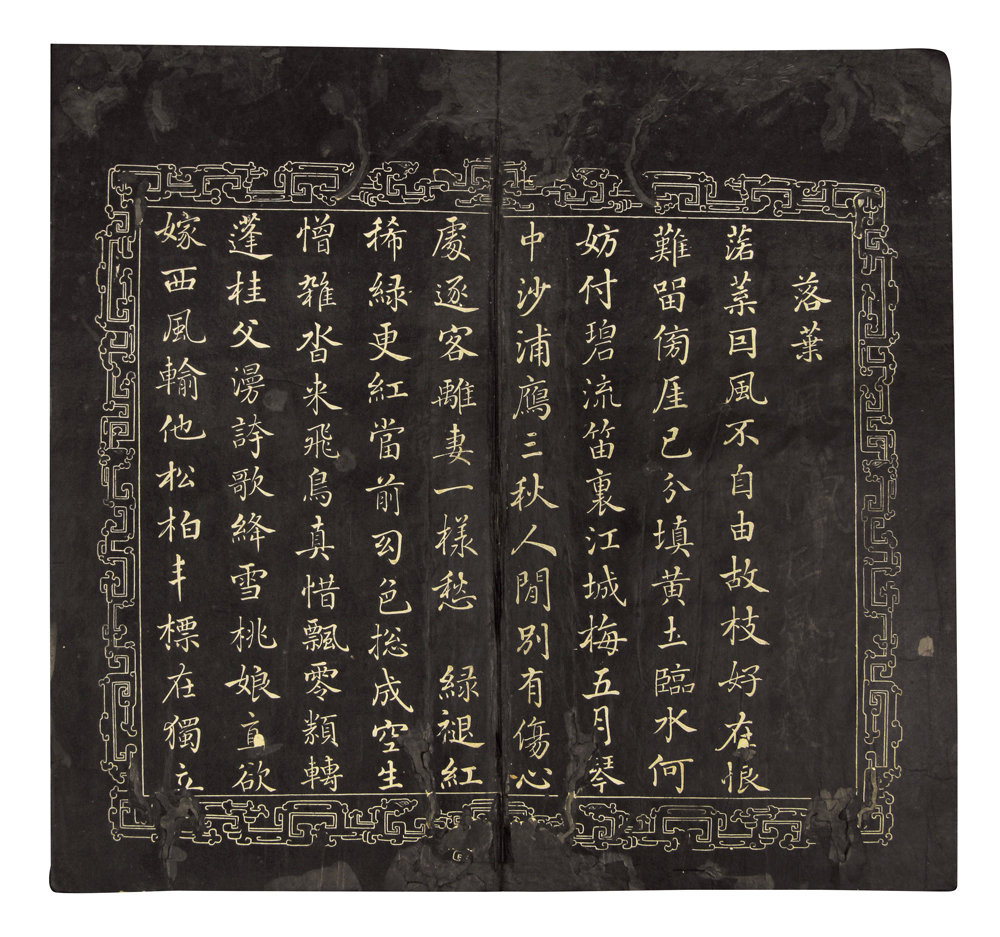 落葉
落葉回風不自由故枝好在恨
難留傍厓已分填黄土臨水何
妨付碧流笛裏江城梅五月琴
中沙浦鴈三秋人閒別有傷心
處逐客離妻一樣愁　緑褪紅
稀緑更紅當前幻色総成空生
憎雜沓来飛鳥真惜飄零類轉
蓬桂父漫誇歌絳雪桃娘直欲
嫁西風輸他松柏丰標在獨立